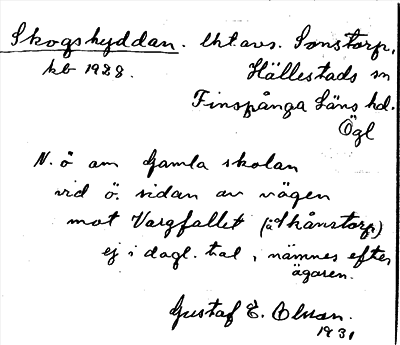 Skogshyddan. lht. avs. Sonstorp,
kb 1928. Hällestads sn
Finspånga läns hd.
Ögl
N. ö om Gamla skolan
vid ö. sidan av vägen
mot Vargfallet (åt Skånstorp)
ej i dagl. tal, nämnes efter
ägaren.
Gustaf E. Olsson.
1931